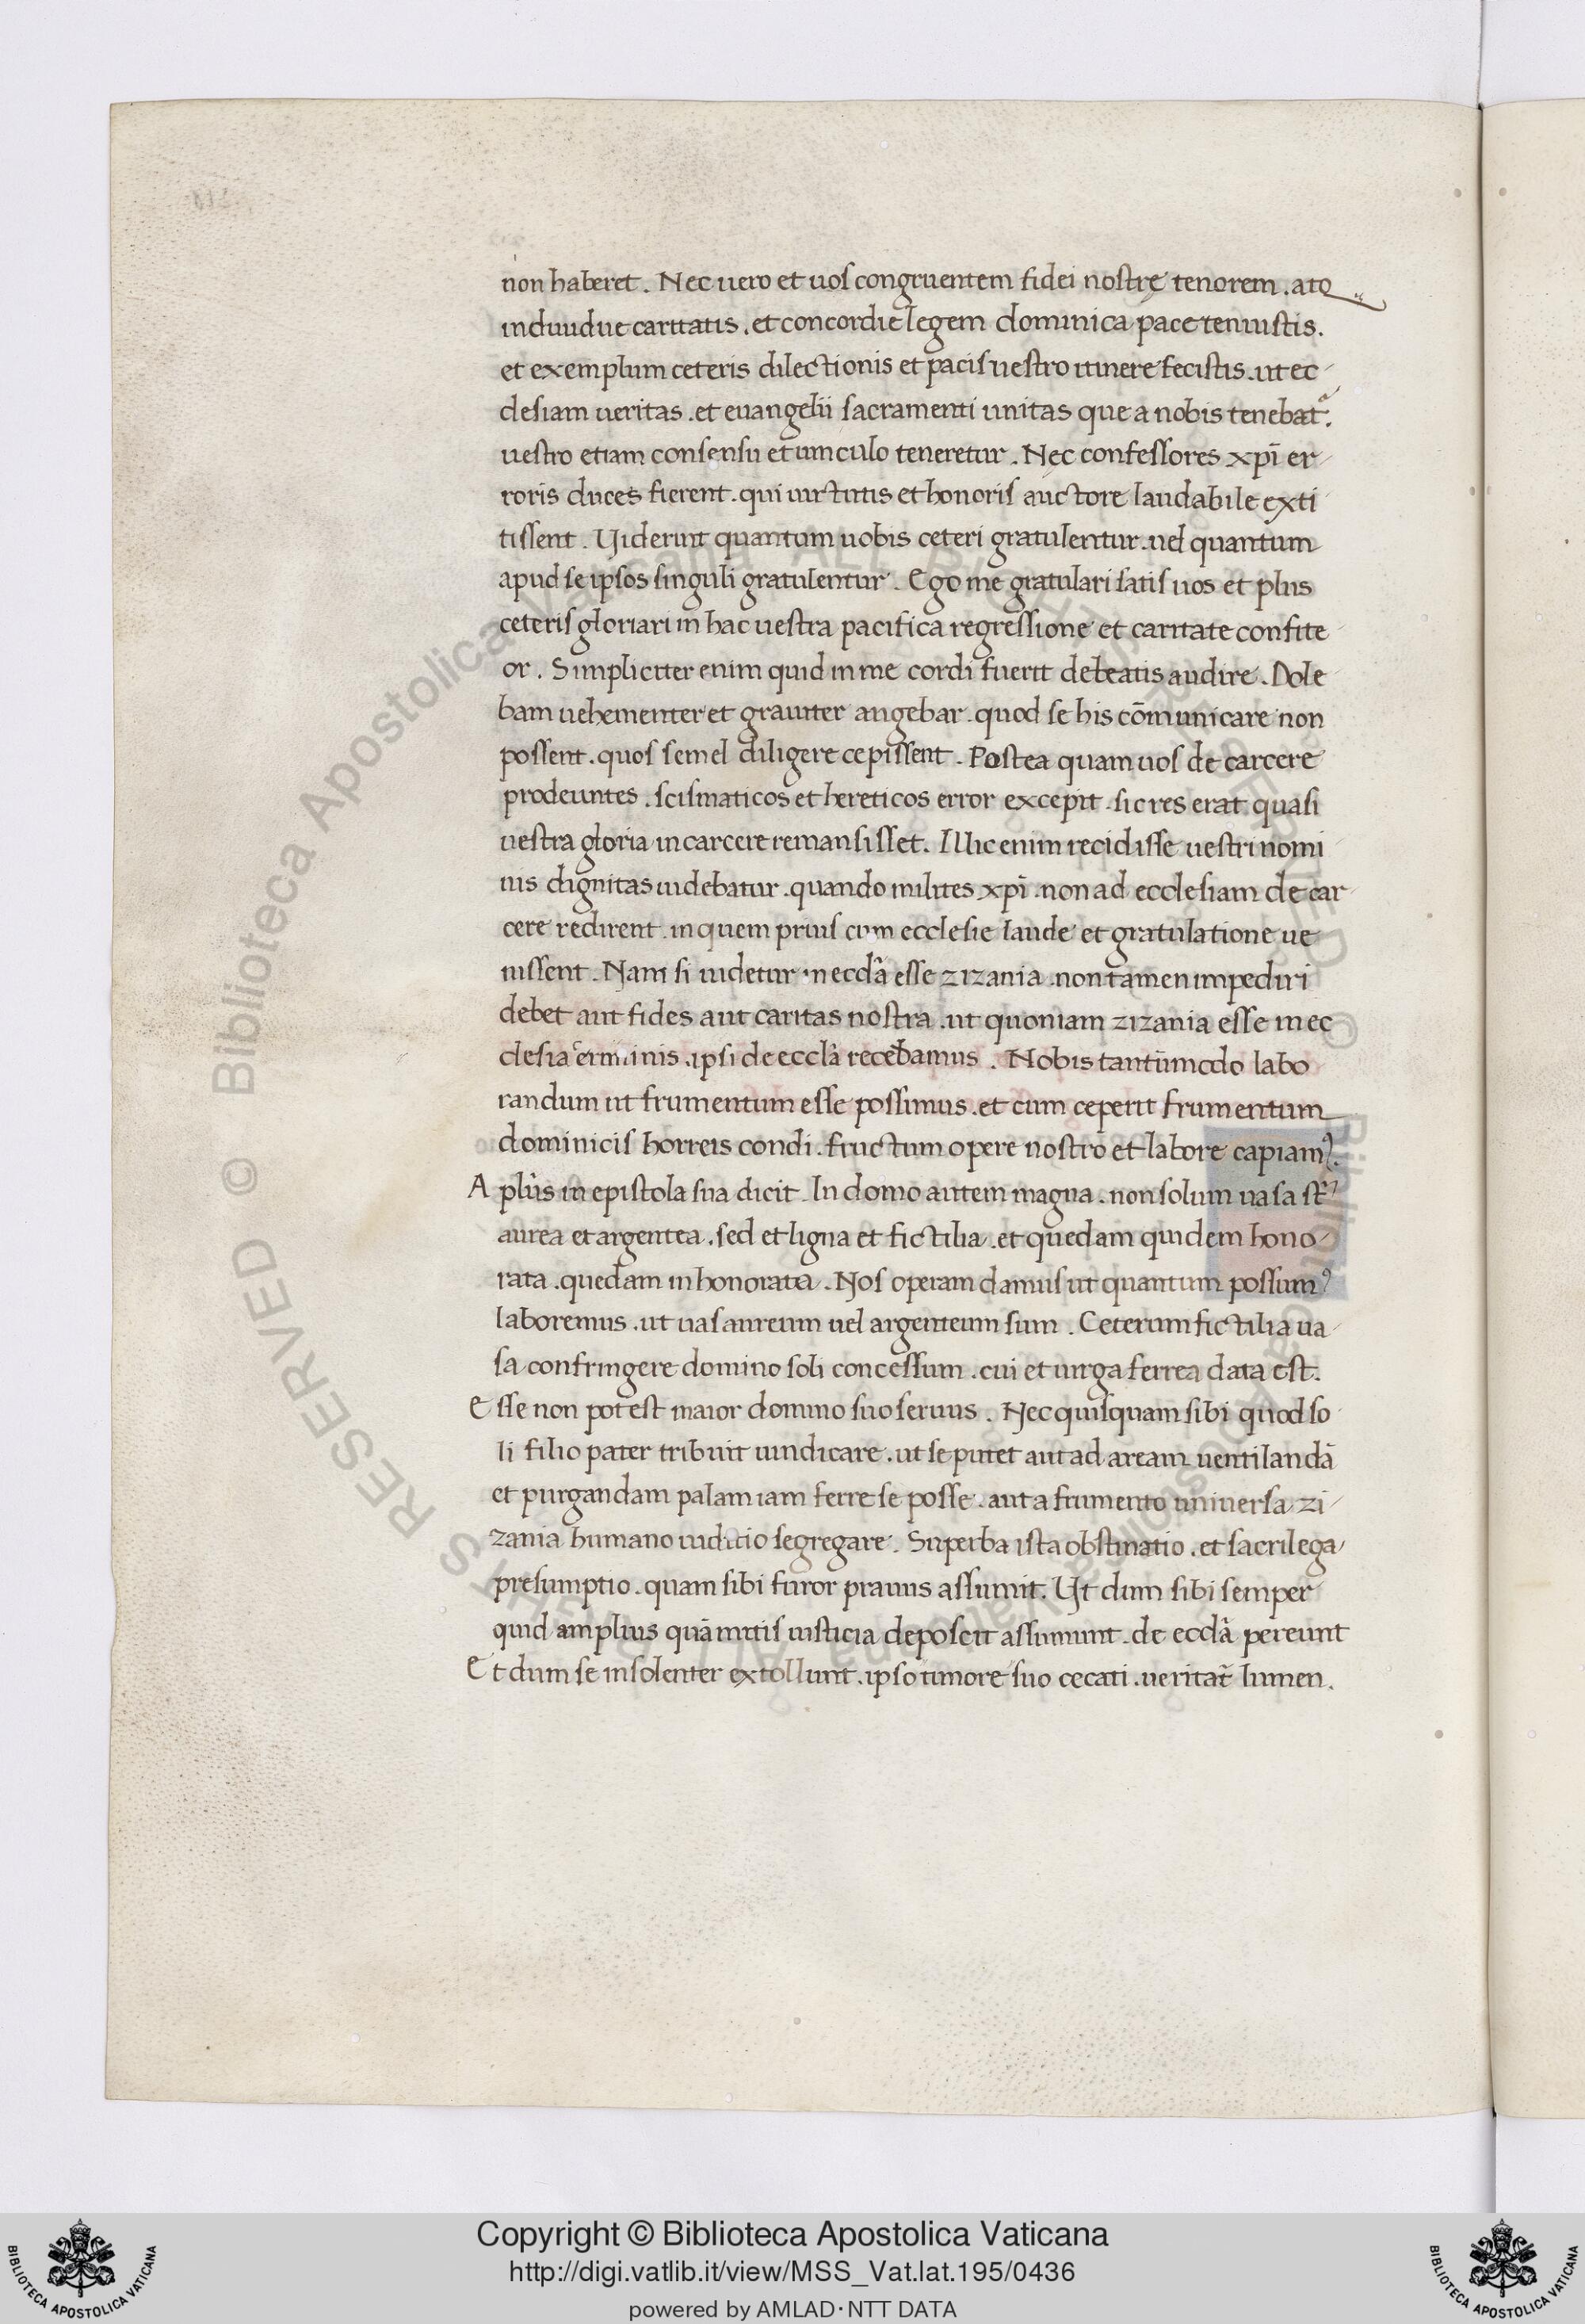 non haberet . Nec uero et uos congruentem fidei nostrę tenorem . atq
indiuidue caritatis . et concordie legem dominica pace tenuistis.
et exemplum ceteris dilectionis et pacis uestro itinere fecistis . ut ec
clesiam ueritas . et euangelii sacramenti unitas que a nobis tenebat᷑.
uestro etiam consensu et uinculo teneretur . Nec confessores xp̄i er
roris duces fierent . qui uirtutis et honoris auctore laudabile exti
tissent . Uiderint quantum uobis ceteri gratulentur . uel quantum
apud se ipsos singuli gratulentur . Ego me gratulari satis uos et plus
ceteris gloriari in hac uestra pacifica regressione et caritate confite
or . Simpliciter enim quid in me cordi fuerit debeatis audire . Dole
bam uehementer et grauiter angebar . quod se his cōmunicare non
possent . quos semel diligere cepissent . Postea quam uos de carcere
prodeuntes . scismaticos et hereticos error excepit . sic res erat quasi
uestra gloria in carcere remansisset . Illic enim recidisse uestri nomi
nis dignitas uidebatur . quando milites xp̄i . non ad ecclesiam de car
cere redirent . in quem prius cum ecclesie laude et gratulatione ue
nissent . Nam si uidetur in eccl̄a esse zizania . non tamen impediri
debet aut fides aut caritas nostra . ut quoniam zizania esse in ec
clesia ipsi de eccl̄a recedamus . Nobis tantūmodo labo
randum ut frumentum esse possimus . et cum ceperit frumentum
dominicis horreis condi . fructum opere nostro et labore capiamꝰ.
Apl̄us in epistola sua dicit . In domo autem magna . non solum uasa st̄
aurea et argentea . sed et ligna et fictilia . et quedam quidem hono
rata . quedam inhonorata . Nos operam damus ut quantum possumꝰ
laboremus . ut uas aureum uel argenteum sum . Ceterum fictilia ua
sa confringere domino soli concessum . cui et uirga ferrea data est.
Esse non potest maior domino suo seruus . Nec quisquam sibi quod so
li filio pater tribuit uindicare . ut se putet aut ad aream uentilandā
et purgandam palam iam ferre se posse . aut a frumento uniuersa zi
zania humano iudicio segregare . Superba ista obstinatio . et sacrilega
presumptio . quam sibi furor prauus assumit . Ut dum sibi semper
quid amplius quā mitis iusticia deposcit assumunt . de eccl̄a pereunt
Et dum se insolenter extollunt . ipso timore suo cecati . ueritat̄ lumen .
© Biblioteca Apostolica Vaticana ALL RIGHTS RESERVED
Copyright © Biblioteca Apostolica Vaticana
http://digi.vatlib.it/view/MSS_Vat.lat.195/0436
powered by AMLAD·NTT DATA
BIBLIOTECA APOSTOLICA VATICANA
BIBLIOTECA APOSTOLICA VATICANA